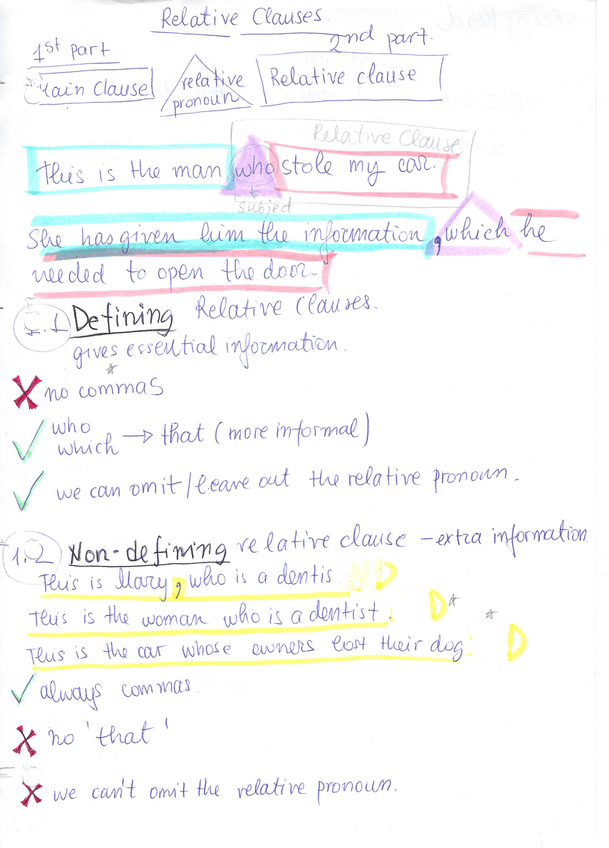 Relative Clauses.
1st part
2nd part.
Main Clause
relative pronoun
Relative clause
Relative Clause
This is the man who stole my car.
subject
She has given him the information, which he
needed to open the door.
1.1 Defining Relative Clauses.
gives essential information.
no commas
who
which → that (more informal)
we can omit / leave out the relative pronoun.
1.2 Non-defining relative clause - extra information
This is Mary, who is a dentis ND
This is the woman who is a dentist. D
This is the car whose owners lost their dog. D
always commas.
no 'that'
we can't omit the relative pronoun.